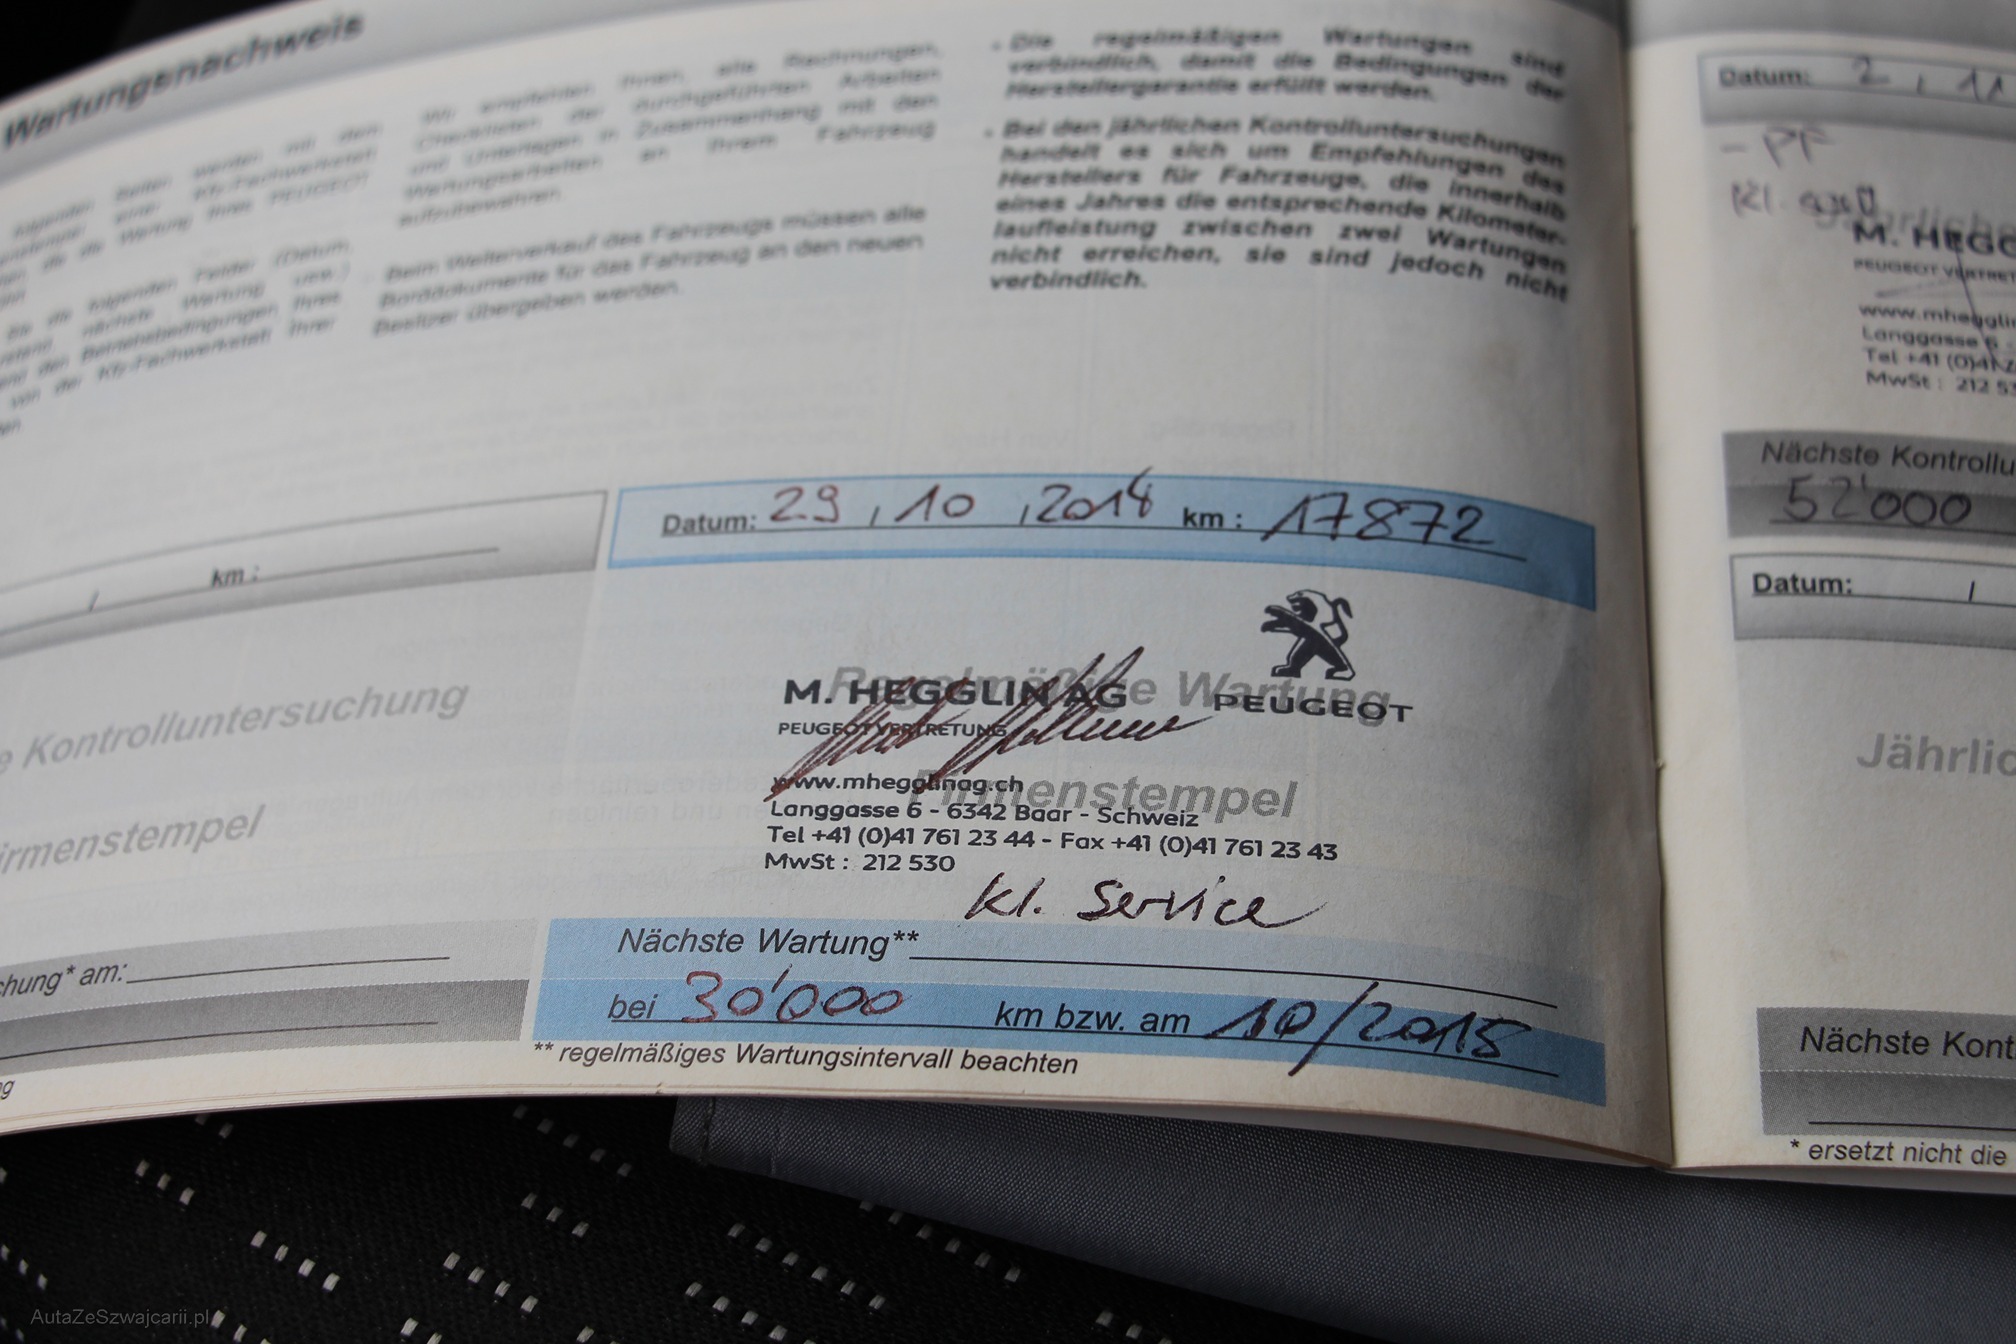 Wartungsnachweis
folgenden Seiten werden mit dem
einer Kfz-Fachwerkstatt
die die Wartung Ihres PEUGEOT
die folgenden Felder (Datum,
nächste Wartung usw.)
den Betriebsbedingungen Ihres
von der Kfz-Fachwerkstatt Ihrer
Wir empfehlen Ihnen, alle Rechnungen,
Checklisten der durchgeführten Arbeiten
und Unterlagen in Zusammenhang mit den
Wartungsarbeiten an Ihrem Fahrzeug
aufzubewahren.
Beim Weiterverkauf des Fahrzeugs müssen alle
Borddokumente für das Fahrzeug an den neuen
Besitzer übergeben werden.
- Die regelmäßigen Wartungen sind
verbindlich, damit die Bedingungen der
Herstellergarantie erfüllt werden.
- Bei den jährlichen Kontrolluntersuchungen
handelt es sich um Empfehlungen des
Herstellers für Fahrzeuge, die innerhalb
eines Jahres die entsprechende Kilometer-
laufleistung zwischen zwei Wartungen
nicht erreichen, sie sind jedoch nicht
verbindlich.
/ km :
e Kontrolluntersuchung
irmenstempel
chung* am:
Datum: 29 / 10 / 2014 km : 17872
Regelmäßige Wartung
Firmenstempel
M. HEGGLIN AG
PEUGEOT VERTRETUNG
PEUGEOT
www.mhegglinag.ch
Langgasse 6 - 6342 Baar - Schweiz
Tel +41 (0)41 761 23 44 - Fax +41 (0)41 761 23 43
MwSt : 212 530
Kl. Service
Nächste Wartung**
bei 30'000 km bzw. am 10/2015
** regelmäßiges Wartungsintervall beachten
Datum: 2 / 11
- PF
M. HEGG
PEUGEOT VERTRET
www.mhegglin
Langgasse 6 -
Tel +41 (0)41 7
MwSt : 212 53
Nächste Kontrollu
52'000
Datum: /
Jährlic
Nächste Kont
* ersetzt nicht die
AutaZeSzwajcarii.pl